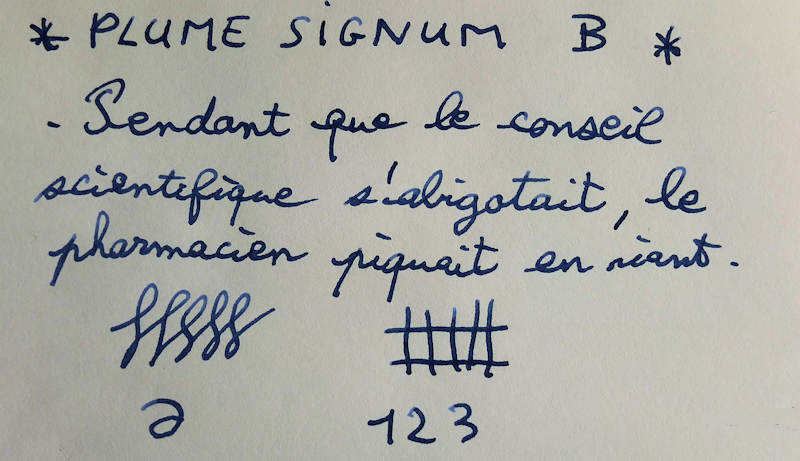 * PLUME SIGNUM B *
- Pendant que le conseil
scientifique s'abigotait, le
pharmacien piquait en riant.
∂ 123